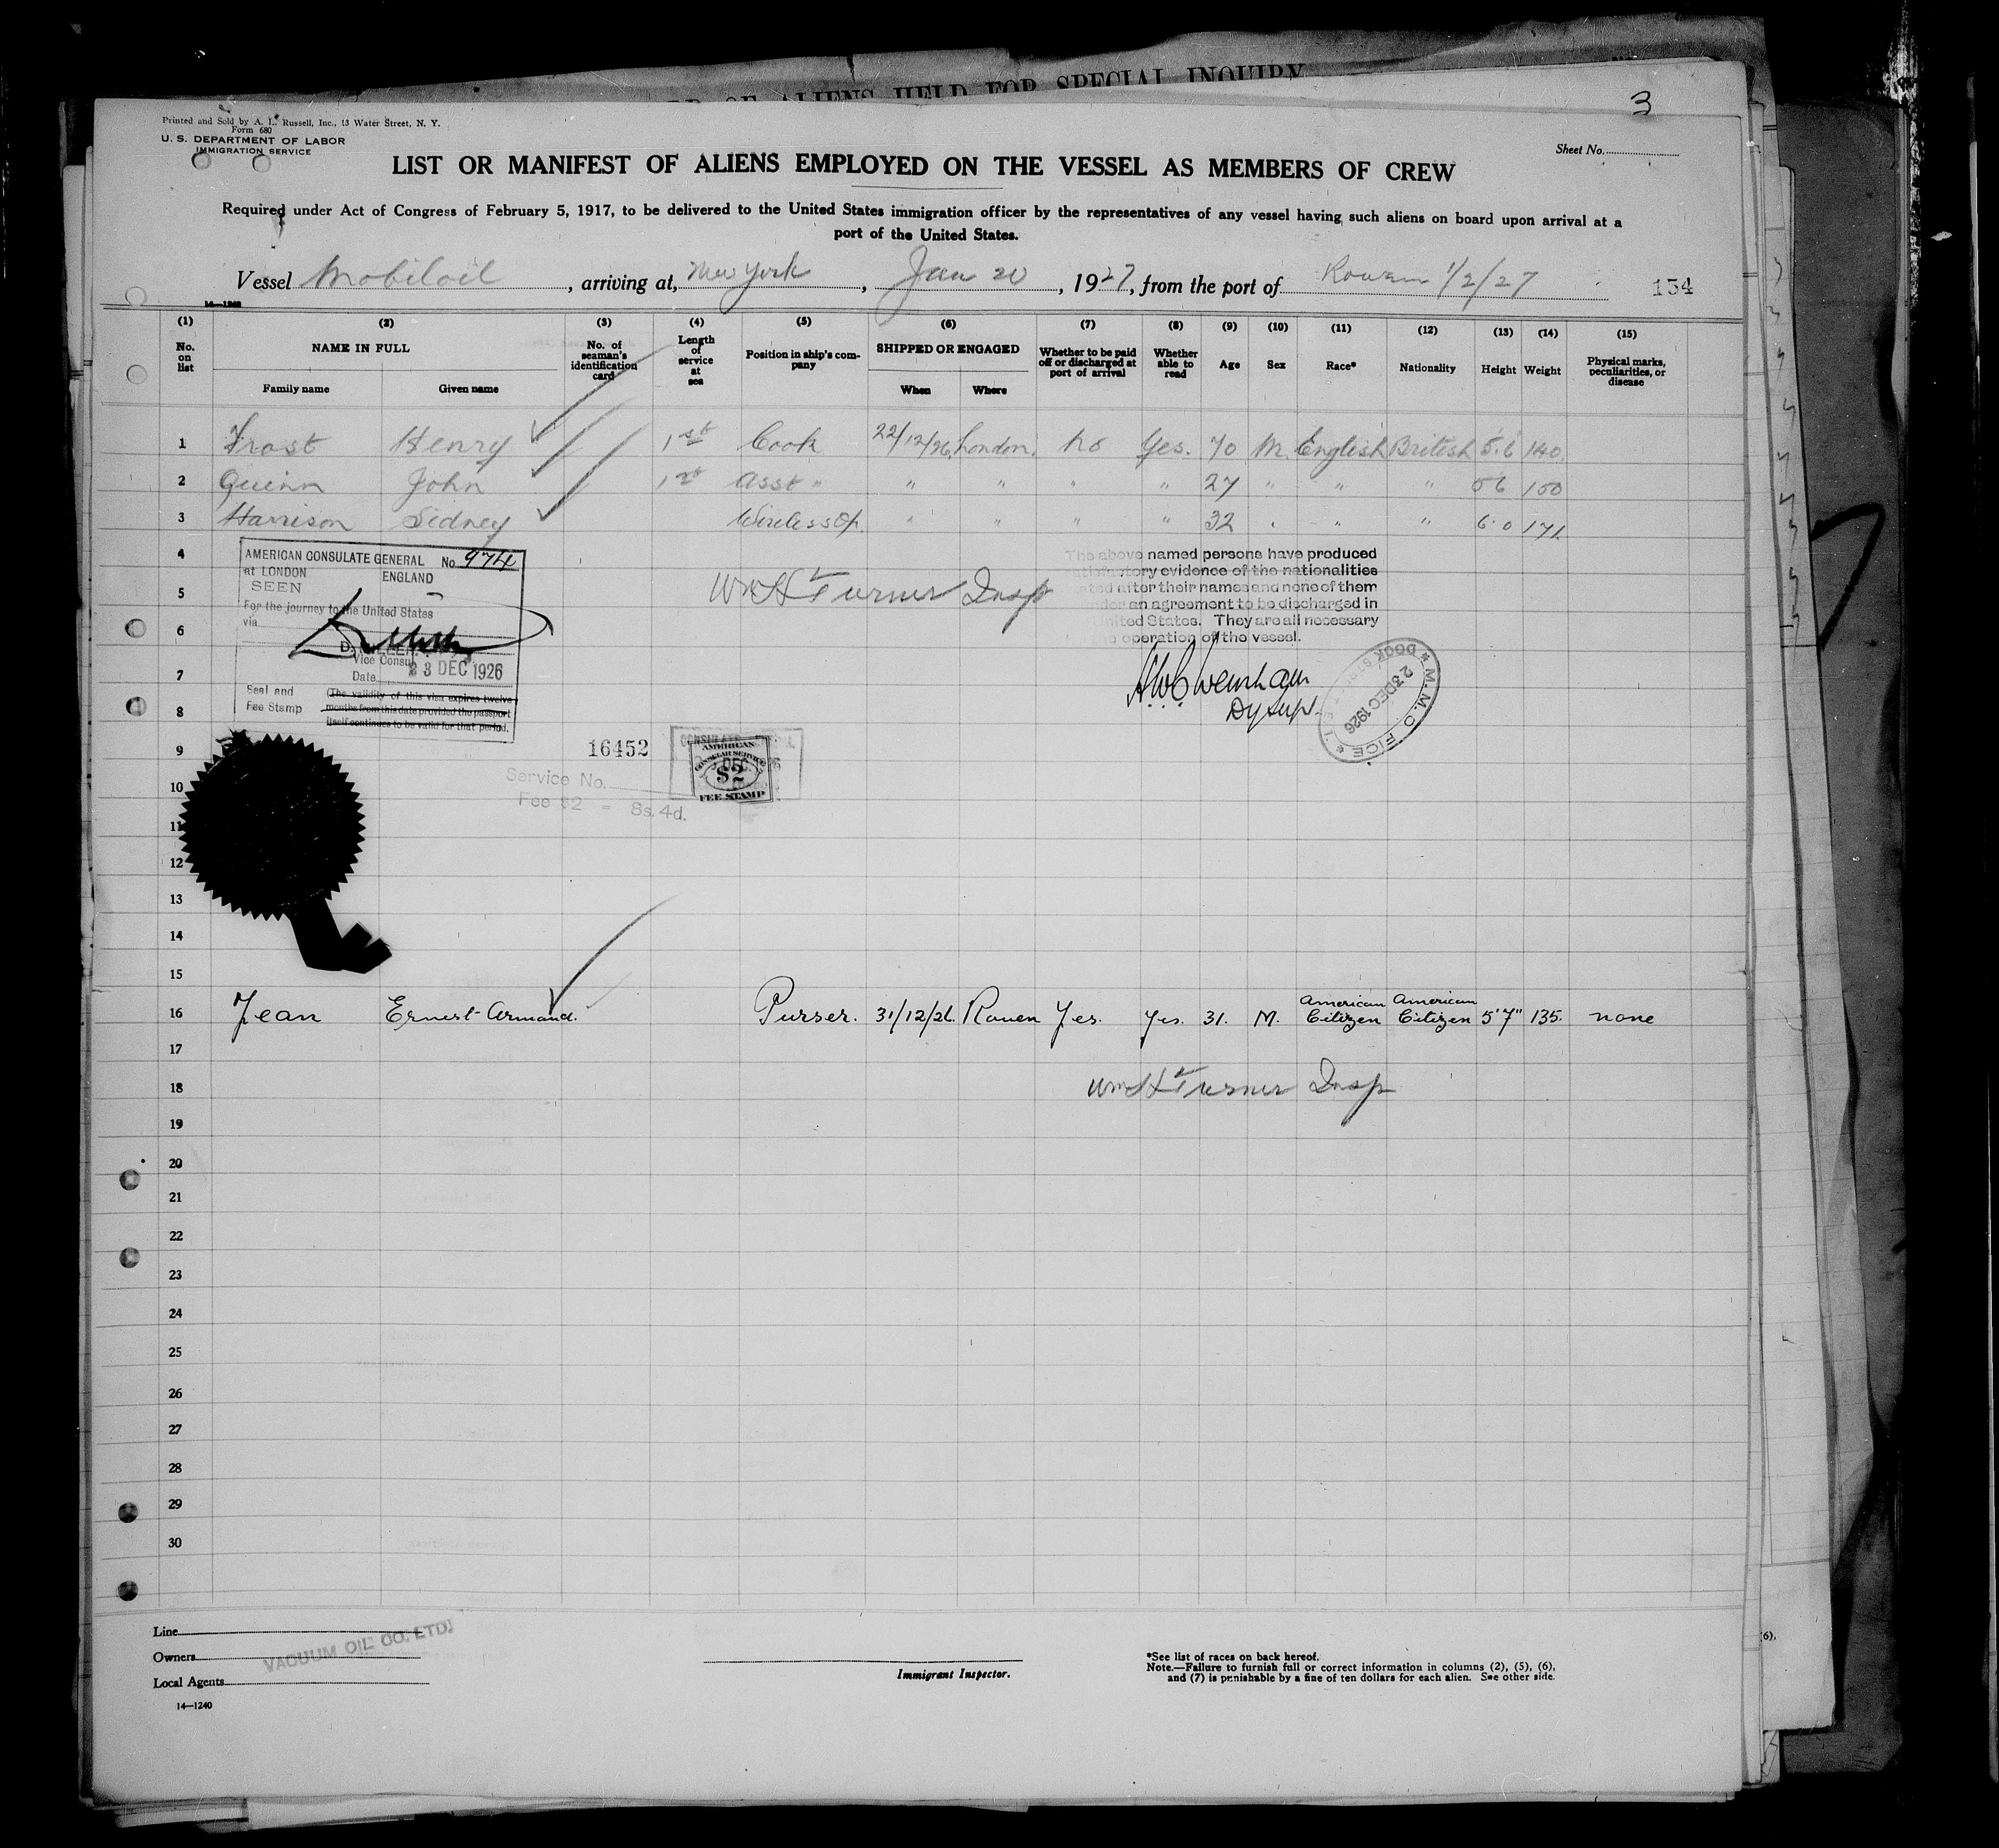 OF ALIENS HELD FOR SPECIAL INQUIRY
3
Printed and Sold by A. L. Russell, Inc., 13 Water Street, N. Y.
Form 680
U. S. DEPARTMENT OF LABOR
IMMIGRATION SERVICE
Sheet No.
LIST OR MANIFEST OF ALIENS EMPLOYED ON THE VESSEL AS MEMBERS OF CREW
Required under Act of Congress of February 5, 1917, to be delivered to the United States immigration officer by the representatives of any vessel having such aliens on board upon arrival at a
port of the United States.
Vessel Mobiloil, arriving at, New York, Jan 20, 1927, from the port of Rouen 1/2/27 154
14—1240
(1) (2) (3) (4) (5) (6) (7) (8) (9) (10) (11) (12) (13) (14) (15)
No. on list
NAME IN FULL
Family name Given name
No. of seaman's identification card
Length of service at sea
Position in ship's company
SHIPPED OR ENGAGED
When Where
Whether to be paid off or discharged at port of arrival
Whether able to read
Age
Sex
Race*
Nationality
Height
Weight
Physical marks, peculiarities, or disease
1 Frost Henry 1st Cook 22/12/26 London. No Yes. 70 M. English British 5.6 140.
2 Quinn John 1st Asst " " " " " 27 " " " 56 150
3 Harrison Sidney Wireless Op. " " " " 32 " " " 6.0 171.
4
5
6
7
8
9
10
11
12
13
14
15
AMERICAN CONSULATE GENERAL No. 974
at LONDON ENGLAND
SEEN
For the journey to the United States
via
Vice Consul
Date 23 DEC 1926
Seal and Fee Stamp
(The validity of this visa expires twelve
months from this date provided the passport
itself continues to be valid for that period.
Wm H Turner Insp
The above named persons have produced
satisfactory evidence of the nationalities
after their names and none of them
an agreement to be discharged in
United States. They are all necessary
operation of the vessel.
Dy Supt.
M.M.OFFICE
23 DEC 1926
DOCK
16452
Service No.
Fee $2 = 8s. 4d.
AMERICAN
CONSULAR SERVICE
$2
FEE STAMP
16 Jean Ernest-Armand. Purser. 31/12/26. Rouen Yes. Yes. 31. M. American Citizen American Citizen 5'7" 135. none
17
18 Wm H Turner Insp
19
20
21
22
23
24
25
26
27
28
29
30
Line
Owners VACUUM OIL CO. LTD.
Local Agents
14—1240
Immigrant Inspector.
*See list of races on back hereof.
Note.—Failure to furnish full or correct information in columns (2), (5), (6),
and (7) is punishable by a fine of ten dollars for each alien. See other side.
(6),